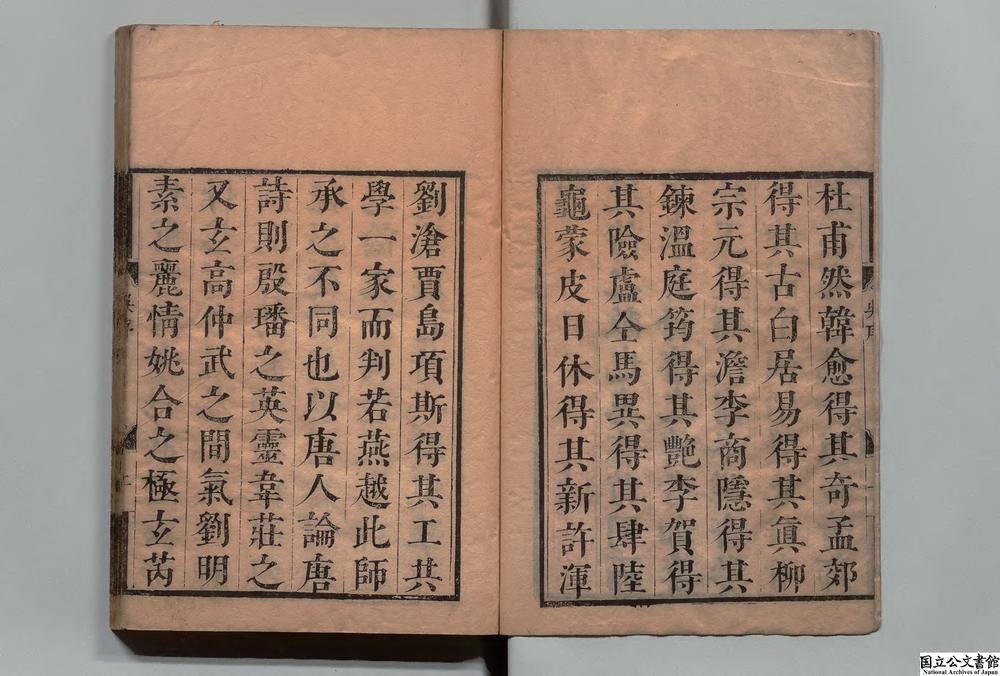 杜甫然韓愈得其奇孟郊
得其古白居易得其眞柳
宗元得其澹李商隱得其
鍊溫庭筠得其艷李賀得
其險盧仝馬異得其肆陸
龜蒙皮日休得其新許渾
劉滄賈島項斯得其工共
學一家而判若燕越此師
承之不同也以唐人論唐
詩則殷璠之英靈韋莊之
又玄高仲武之間氣劉明
素之麗情姚合之極玄芮
国立公文書館
National Archives of Japan